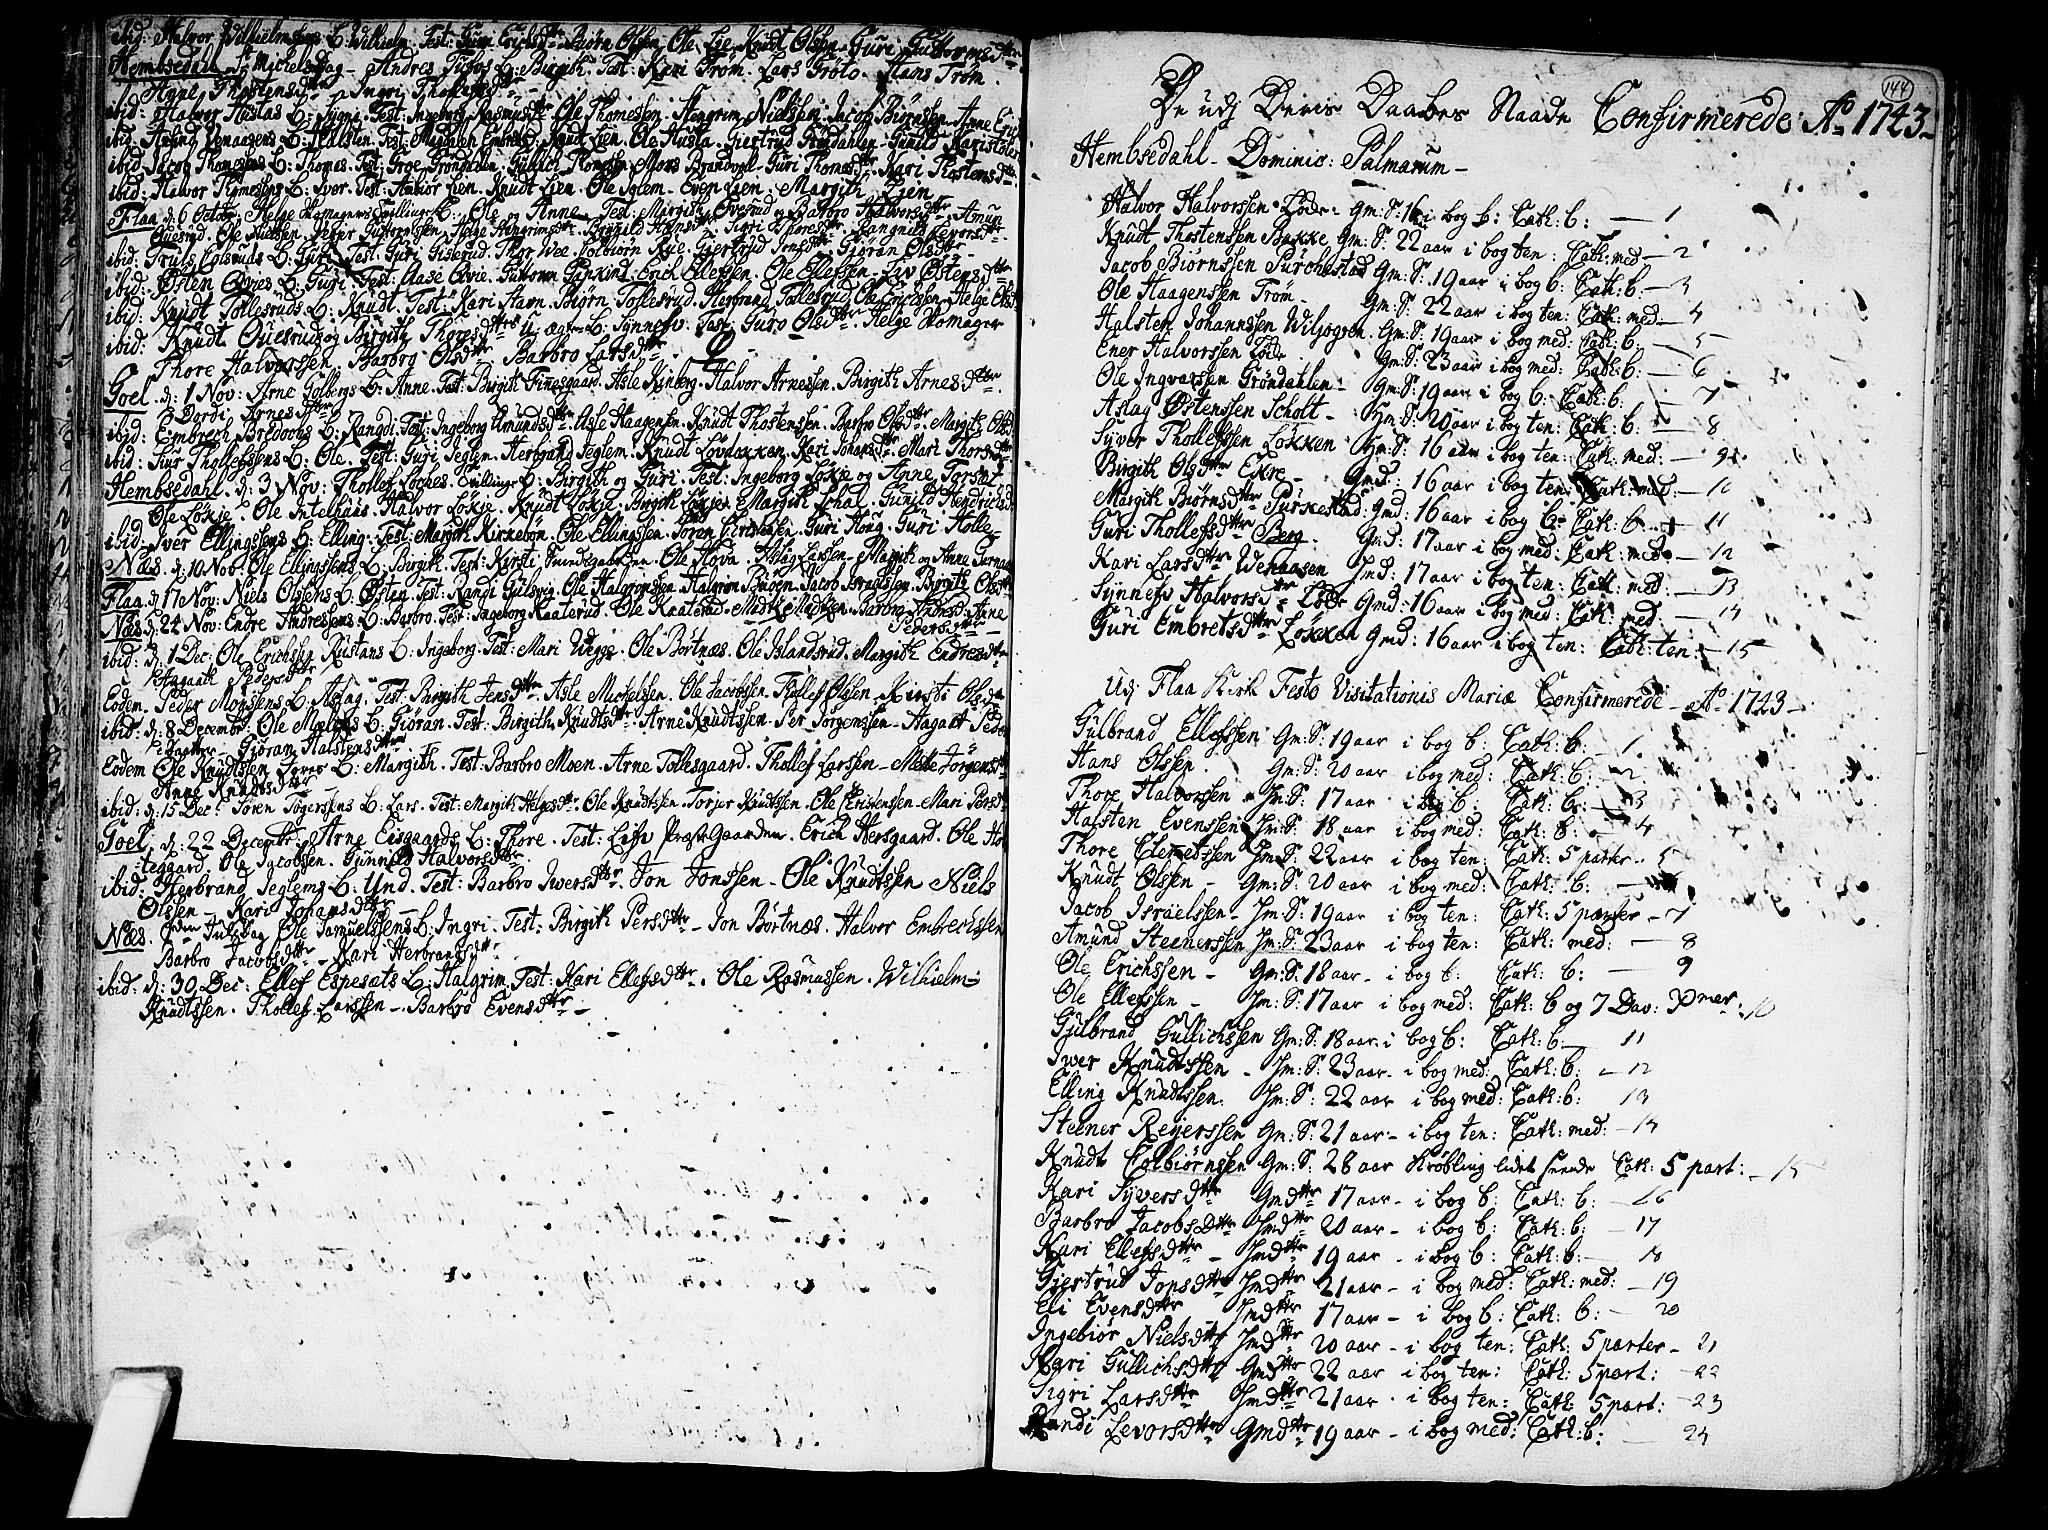 ibid: Halvor Wilhelmsens B: Wilhelm. Test: Guri Erichsdttr Biørn Olssen. Ole Lie. Knudt Olssen. Guri Guttormsdttr
Hembsedahl St. Michelsdag. Andres Tubos B: Birgith. Test: Kari Trøm. Lars Grøto. Hans Trøm.
Anne Thostensdttr. Ingri
ibid: Halvor Hustas B: Sygni. Test: Ingeborg Rasmusdttr Ole Thomessen. Hengrim Nielssen. Jacob Biørnssen. Anne
ibid: B: Halsten. Test: Magdalen Embretsd. Knudt Lien. Ole Husta. Giertrud Grøndahlen. Gunild
ibid: Jacob Thomessens B: Thomes. Test: Groe Grøndalen. Gullich Thomessen. Mons Brandvold. Guri Thomesdttr. Kari Thostensdttr.
ibid: Halvor Thomesens B: Iver. Test: Ambior Lien. Knudt Lien. Ole Iglem. Even Lien. Margith Lien
Flaa d: 6 Octobr. Helge Homagers Tvillinger B: Ole og Anne. Test: Margith Qvesrud og Barbro Halvorsdttr. Amun
Quesrud. Ole Nielsen. Peder Guttormssen. Helge
ibid: Truls Colsruds B: Guri. Test: Guri Giserud. Thor Wee. Colbiørn Rye. Giertrud Jonsdttr. Giøran Olsdttr
ibid: Østen Qvies B: Guri. Test: Aase Qvie. Guttorm Gipkind. Erich Ellefssen. Ole Ellefssen. Liv Østensdttr
ibid: Knudt Tollesruds B: Knudt. Test: Kari Stavn. Biørn Tollesrud. Herbrand Tollesrud. Ole Erichssen. Helge Olsd
ibid: Knudt Quesruds og Birgith Thoresdttrs u. ægte B: Synnefv. Test: Guro Olsdttr. Helge Homager
Thore Halvorssen. Barbro Olsdttr. Barbro Larsdttr.
Goel. d: 1 Nov: Arne Golbergs B: Anne. Test: Birgith Finsgaard. Asle Kinberg. Halvor Arnessen. Birgith Arnesdttr.
Bordi Arnesdttr
ibid: Embrech Bredvobs B: Rangdi. Test: Ingeborg Amundsdttr. Asle Haagensen. Knudt Thostenssen. Barbro Olsdttr. Margith Olsd
ibid: Siur Thollefssens B: Ole. Test: Guri Jeglem. Herbrand Jeglem. Knudt Løvdokken. Kari Johansdttr. Mari Thorsdttr
Hembsedahl. d: 3 Nov: Thollef Lockes. Tvillinger B: Birgith og Guri. Test: Ingeborg Løkje og Anne Torset.
Ole Løkje. Ole Intelhuus. Halvor Løkje. Knudt Løkje. Birgith Løkje. Margith Schal. Gunild Hendrichsd
ibid: Iver Ellingssens B: Elling. Test: Margith Kirkebøn. Ole Ellingssen. Søren Christensen. Guri Houg. Guri Holle-
Næs. d: 10 Nob: Ole Ellingssens B: Birgith. Test: Kirsti Ole Hova. Aslag Larssen. Margith og Anne
Flaa d: 17 Nov: Niels Olssens B: Østen. Test: Randi Gulsvig. Ole Halgrimssen. Halgrim Bucken. Jacob Israelssen. Birgith Olsdttr
Næs d: 24 Nov: Endre Andressens B: Barbro. Test: Ingeborg Kaaterud. Ole Kaaterud. Anne
Pedersdttr
ibid: d: 1 Dec: Ole Erichssen Rustans B: Ingeborg. Test: Mari Uegge. Ole Børtnæs. Ole Islandsrud. Margith Endresdttr
Aagaath Pedersdttr
Eodem. Peder Monssens B: Aslag. Test: Birgith Jensdttr. Asle Michelssen. Ole Jacobssen. Thollef Olssen. Kirsti Olsd
ibid: d: 8 Decembr: Ole Moelens B: Giøran. Test: Birgith Knudtsdttr. Arne Knudtssen. Per Jørgenssen. Aagaat Peder
Giøran Halstensdttr
Eodem Ole Knudtssen B: Margith. Test: Barbro Moen. Arne Tollesgaard. Thollef Larssen. Mette Jørgensdttr
Anne Knudtsdttr
ibid: d: 15 Dec: Søren Togersens B: Lars. Test: Margith Helgesdttr. Ole Knudtssen. Torjus Knudtssen. Ole Christenssen. Mari Persd
Goel. d: 22 Decembr. Arne Eisgaards B: Thore. Test: Lisv Prestgaarden. Erich Hersgaard. Ole Ho-
tegaard. Ole Jacobssen. Gunnild Halvorsdttr.
ibid: Herbrand Jeglems B: Und. Test: Barbro Iwersdttr. Jon Jonssen. Ole Knudtssen Niels
Olssen. Kari Johansdttr
Næs. 2den Juledag Ole Samuelssens B: Ingri. Test: Birgith Persdttr. Jon Børtnæs. Halvor Embrechssen
Barbro Jacobsdttr. Kari Herbrandsdttr
ibid: d: 30 Dec: Ellef Espesats B: Halgrim. Test: Kari Ellefsdttr. Ole Rasmussen. Wilhielm
Knudtssen. Thollef Larssen. Barbro Evensdttr
144
De udj Deris Daabes Naade Confirmerede Ao 1743.
Hembsedahl. Dominic: Palmarum
Halvor Halvorssen Løde. Gm: S: 16 i bog b: Cath: b: — 1
Knudt Thostenssen Bakke Gm: S: 22 aar i bog ten: Cath: med — 2
Jacob Biørnssen Purchestad Gm: S: 19 aar i bog b: Cath: b: — 3
Ole Haagenssen Trøm. Gm: S: 22 aar i bog ten: Cath: med — 4
Halsten Johannssen Wiljogren. Gm: S: 19 aar i bog med: Cath: b: — 5
Ener Halvorssen Løde Gm: S: 23 aar i bog med: Cath: b: — 6
Ole Ingvarssen Grøndahlen. Gm: S: 19 aar i bog b: Cath: b: — 7
Aslag Østenssen Scholt. Gm: S: 20 aar i bog ten: Cath: b: — 8
Syver Thollefssen Løkken Gm: S: 16 aar i bog ten: Cath: med: — 9
Birgith Olsdttr Exre. Gmd: 16 aar i bog ten: Cath: med: — 10
Margith Biørnsdttr Purkestad: Gmd: 16 aar i bog b: Cath: b — 11
Guri Thollefsdttr Berg. Gmd: 17 aar i bog med: Cath: med — 12
Kari Larsdttr Wenaasen Jmd: 17 aar i bog ten: Cath: med: — 13
Synnefv Halvorsdttr Løde Gmd: 16 aar i bog med: Cath: med — 14
Guri Embretsdttr Løkken Gmd: 16 aar i bog ten: Cath: ten: — 15
Udj Flaa Kirk Festo Visitationis Mariæ Confirmerede Ao 1743.
Gulbrand Ellefssen Gm: S: 19 aar i bog b: Cath: b: — 1
Hans Olssen. Gm: S: 20 aar i bog med: Cath: b: — 2
Thore Halvorssen Jm: S: 17 aar i bog b: Cath: b: — 3
Halsten Evenssen Jm: S: 18 aar i bog med: Cath: b: — 4
Thore Clemetssen Jm: S: 22 aar i bog ten: Cath: 5 parter. 5
Knudt Olssen — Gm: S: 20 aar i bog med: Cath: b: —
Jacob Israelssen. Jm: S: 19 aar i bog ten: Cath: 5 parter — 7
Amund Steenerssen Jm: S: 23 aar i bog ten: Cath: med: — 8
Ole Erichssen — Gm: S: 18 aar i bog b: Cath: b: — 9
Ole Ellefssen — Jm: S: 17 aar i bog med: Cath: b og 7 Dav: 10
Gulbrand Gullichssen Gm: S: 18 aar i bog b: Cath: b: — 11
Iwer Knudtssen — Jm: S: 23 aar i bog med: Cath: b: — 12
Elling Knudtssen. Jm: S: 22 aar i bog med: Cath: b: 13
Steener Reyerssen Gm: S: 21 aar i bog ten: Cath: med: — 14
Knudt Colbiørnssen Gm: S: 28 aar Krøbling lidet seende Cath: 5 part: — 15
Kari Syversdttr Gmdttr 17 aar — i bog b: Cath: b: — 16
Barbro Jacobsdttr Jmdttr 20 aar — i bog b: Cath: b: — 17
Kari Ellefsdttr — Jmdttr 19 aar — i bog b: Cath: b: — 18
Giertrud Jonsdttr Jmdttr 21 aar — i bog med: Cath: med: — 19
Eli Evensdttr Jmdttr 17 aar — i bog b: Cath: b: — 20
Ingebiør Nielsdttr Jmdttr 20 aar — i bog ten: Cath: 5 parter — 21
Kari Gullichsdttr Gmdttr 22 aar — i bog ten: Cath: 5 part: — 22
Sigri Larsdttr Jmdttr 21 aar — i bog ten: Cath: 5 part: — 23
Randi Levorsdttr Gmdttr 19 aar — i bog med: Cath: b: — 24